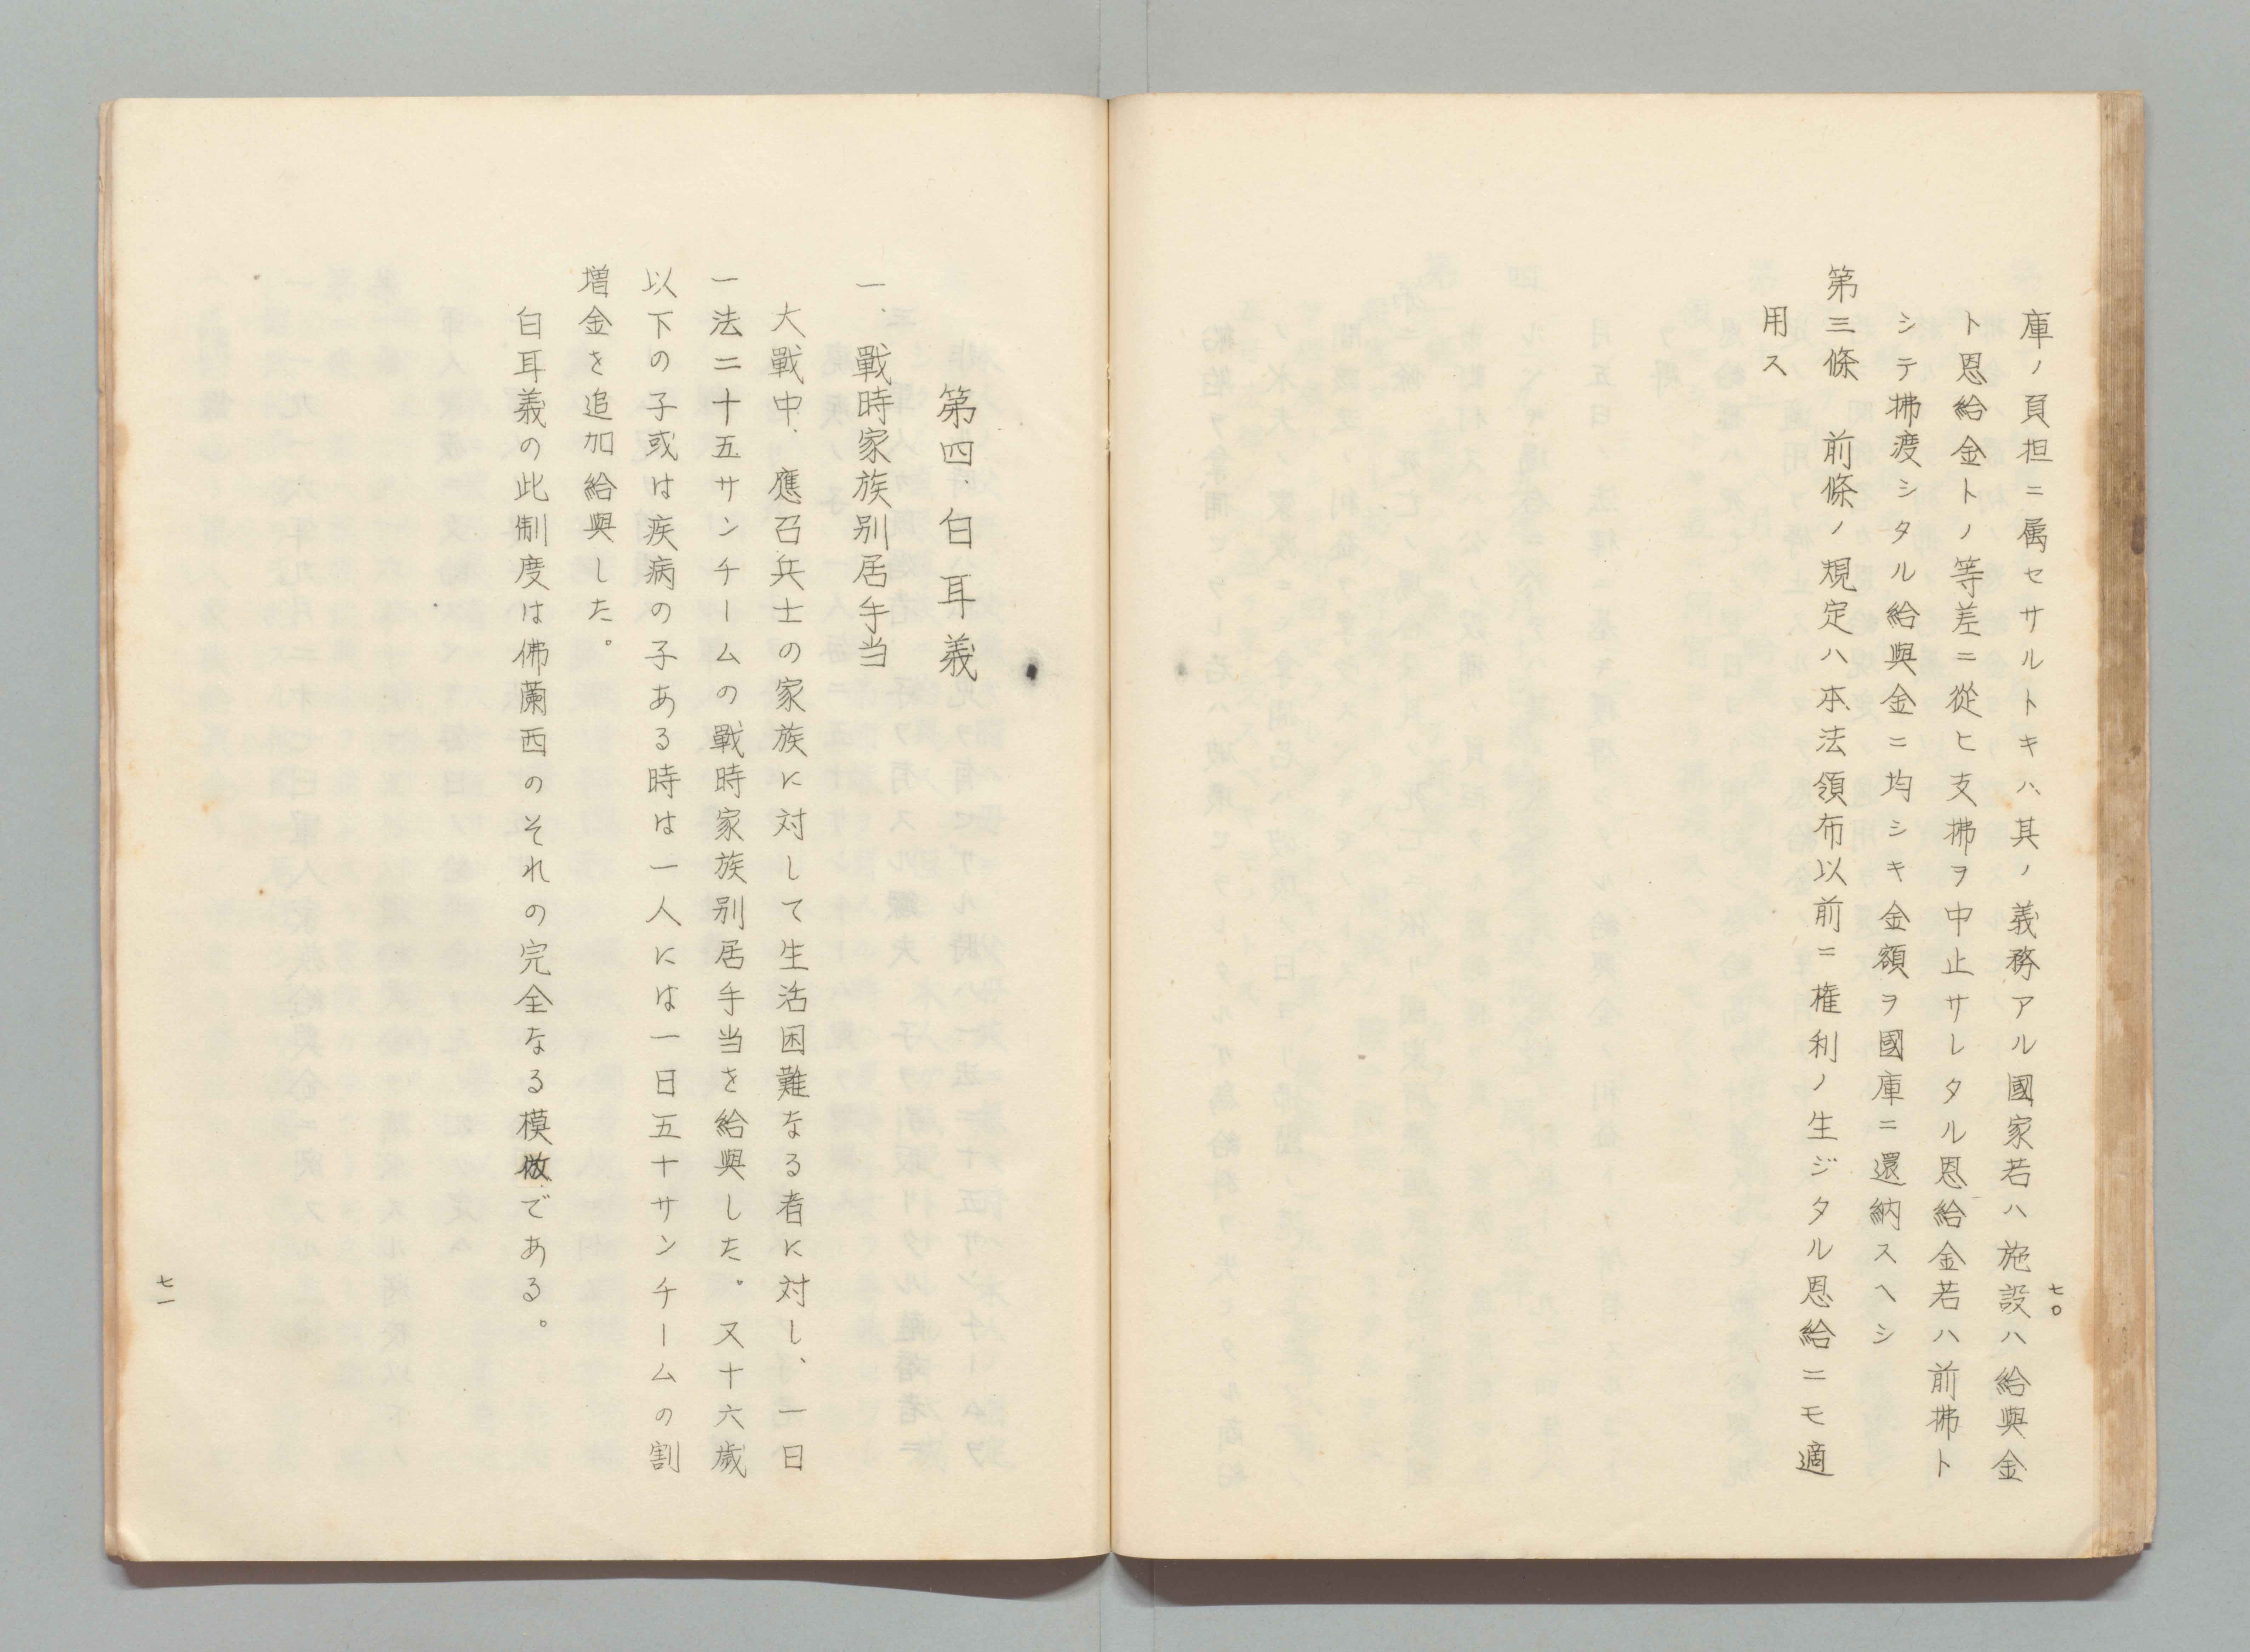 庫ノ負担ニ属セサルトキハ其ノ義務アル國家若ハ施設ハ給與金
ト恩給金トノ等差ニ從ヒ支拂ヲ中止サレタル恩給金若ハ前拂ト
シテ拂渡シタル給與金ニ均シキ金額ヲ國庫ニ還納スヘシ
第三條　前條ノ規定ハ本法領布以前ニ権利ノ生ジタル恩給ニモ適
用ス
七〇
第四、白耳義
一、戰時家族别居手当
大戰中、應召兵士の家族に対して生活困難なる者に対し、一日
一法二十五サンチームの戰時家族别居手当を給與した。又十六歳
以下の子或は疾病の子ある時は一人には一日五十サンチームの割
増金を追加給與した。
白耳義の此制度は佛蘭西のそれの完全なる模倣である。
七一